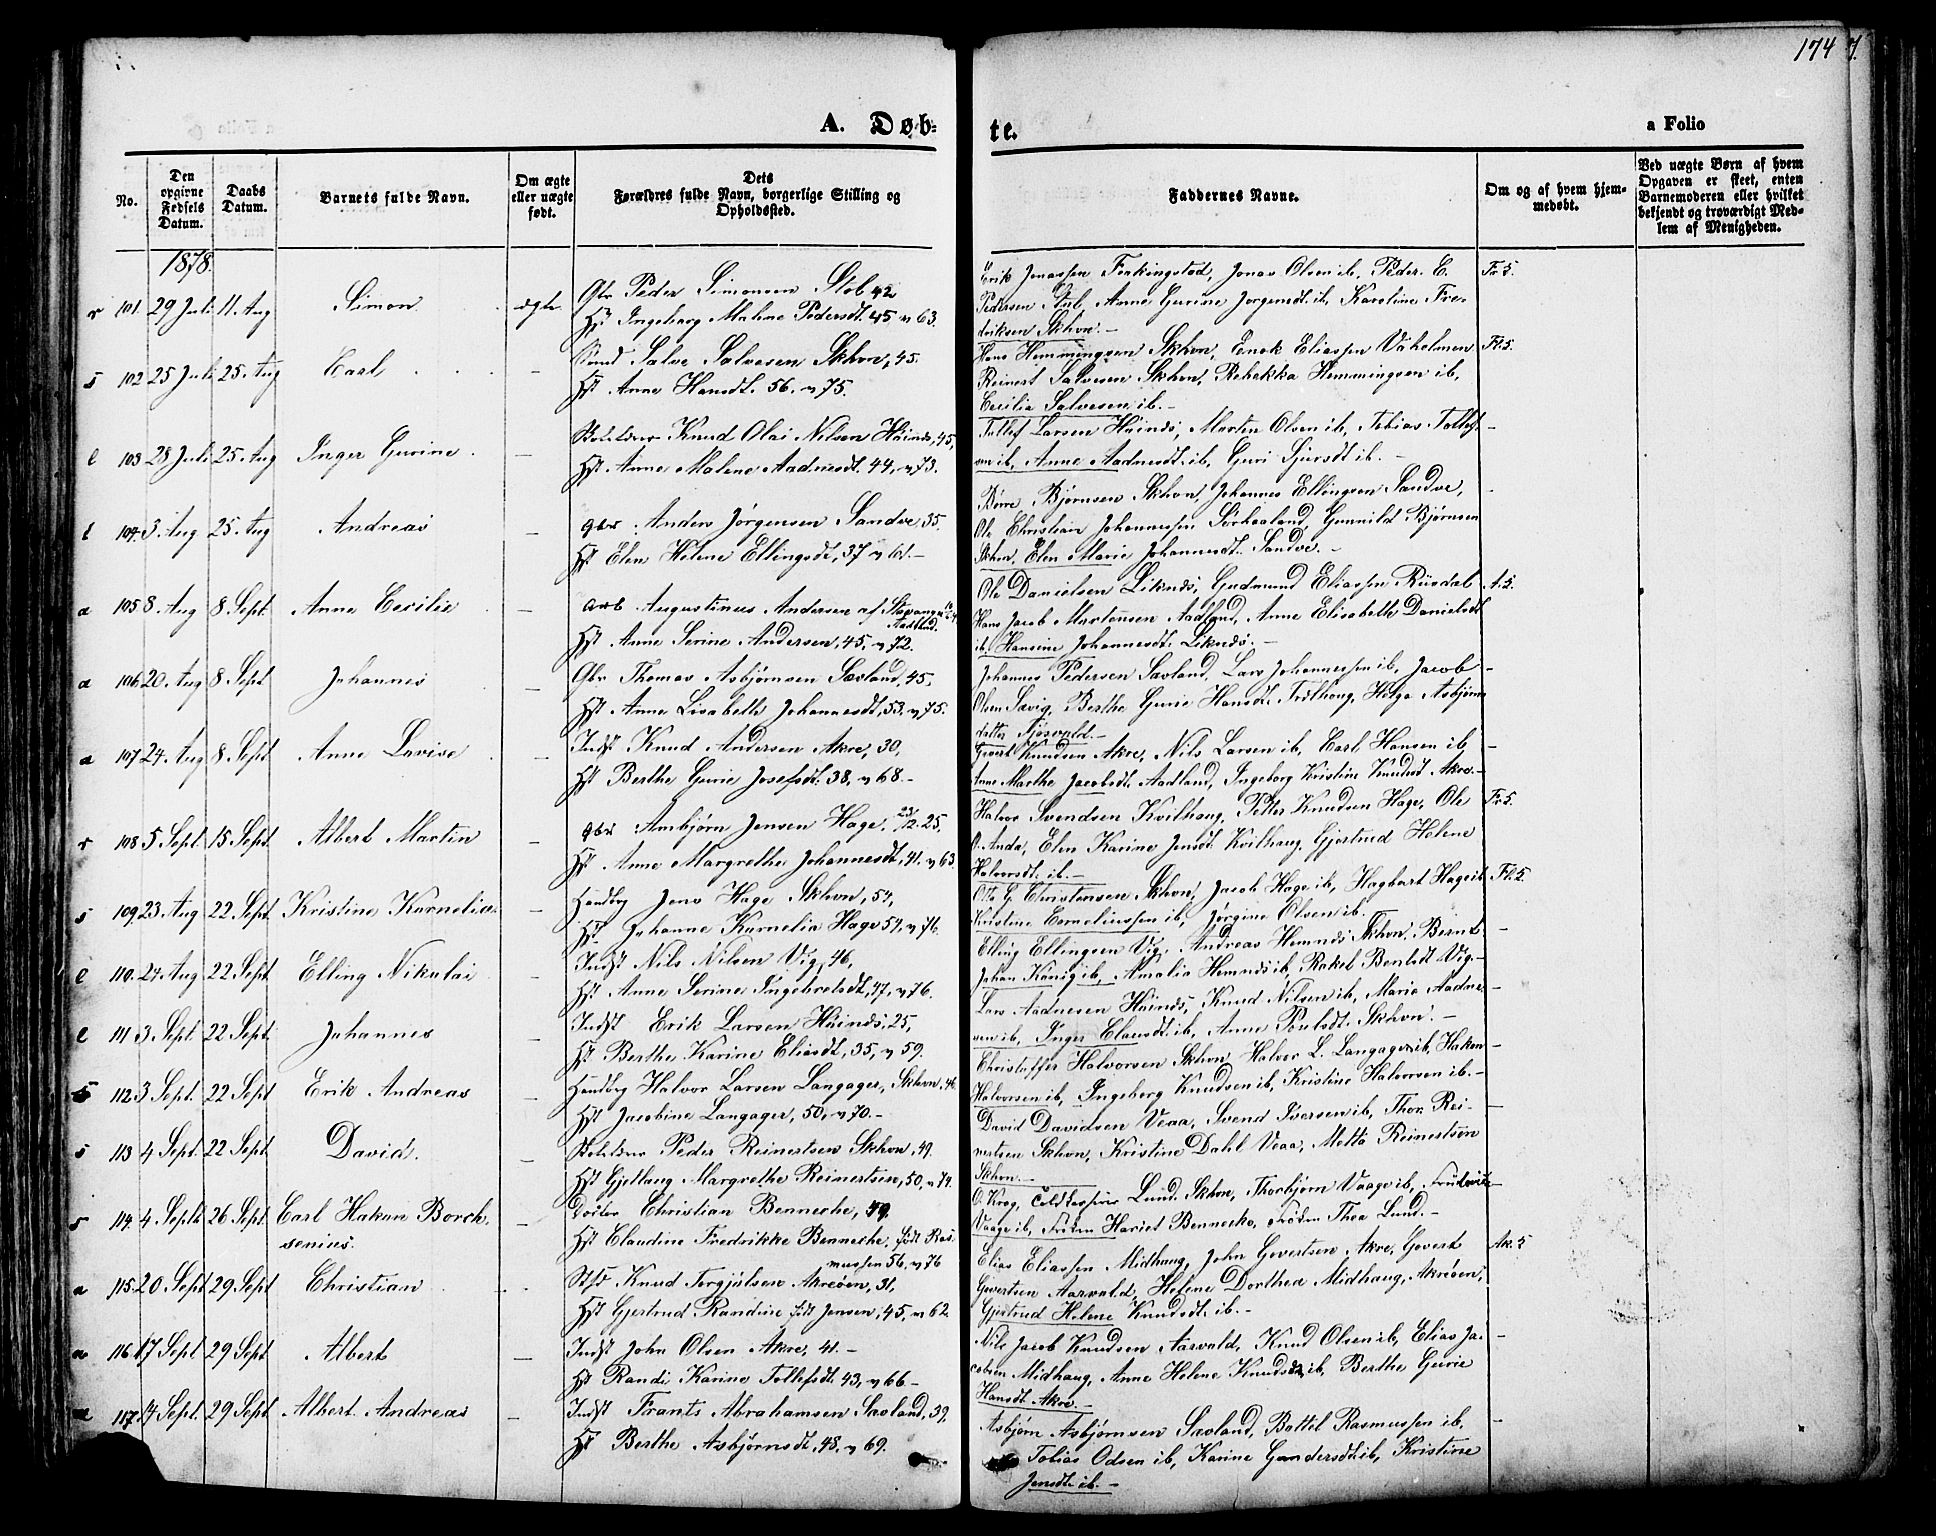 174 7.
A. Døb-
te.
a Folio
No.
Den opgivne Fødsels Datum.
Daabs Datum.
Barnets fulde Navn.
Om ægte eller uægte født.
Dets Forældres fulde Navn, borgerlige Stilling og Opholdssted.
Faddernes Navne.
Om og af hvem hjemmedøbt.
Ved uægte Børn af hvem Opgaven er skeet, enten Barnemoderen eller hvilket bekjendt og troværdigt Medlem af Menigheden.
1878.
r 101. 29 Juli 11. Aug Simon ægte
Gbr Peder Simonsen Stol 42
Hst Ingeborg Malene Pedersdt. 45 v 63.
Erik Jonassen Ferkingstad, Jonas Olsen ib, Peder E. Fr. 5.
Pedersen Stol Anne Gurine Jorgensdt. ib, Karoline Fre-
driksen Skhvn. –
s 102 25 Juli 25. Aug Carl –
Salve Salvesen Skhvn, 45.
Hst Anne Hansdt. 56. v 75.
Hans Hemmingsen Skhvn, Enok Eliassen Vikholmen Fl. 5.
Reinert Salvesen Skhvn, Rebekka Hemmingsen ib,
Cecilie Salvesen ib. –
l 103 28 Juli 25. Aug Inger Gurine –
Knud Olai Nilsen Huinds, 45,
Hst Anne Malene Aadnesdt. 44, v 73.
Tollef Larsen Huinds, Morten Olsen ib, Tobias Tollef- –
sen ib, Anne Aadnesdt. ib, Guri Sjursdt ib. –
l 104. 3 Aug 25. Aug Andreas –
gbr Anders Jørgensen Sandve, 35.
Hst Elen Helene Ellingsdt, 37 v 61. –
Børre Bjørnsen Skhvn, Johannes Ellingsen Sandve, –
Ole Christian Johannessen Sørhaaland, Gunnild Bjørnsen
Skhvn, Elen Marie Johannesdt. Sandve. –
a 105 8. Aug 8 Sept. Anne Cecilie –
arb Augustinus Andersen af Stavanger
Aadland.
Hst Anne Serine Andersen, 45, v 72.
Ole Danielsen Liknds, Gudmund Eliassen Riisdal A. 5.
Hans Jacob Mortensen Aadland, Anne Elisabeth Danielsdt
ib, Hansine Johannesdt. Liknds. –
a 106. 20. Aug 8 Sept Johannes –
Gbr Thomas Asbjørnsen Sævland, 45.
Hst Anne Lisabeth Johannesdt, 53. v 75.
Johannes Pedersen Sævland, Lars Johannessen ib, Jacob –
Olsen Sævig, Berthe Gurie Hansdt. Kvilhaug, Helga Asbjørns-
datter
a 107 24. Aug 8 Sept Anne Lovise –
Indst Knud Andersen Akre, 30,
Hst Berthe Gurie Josefsdt. 38, v 68. –
Govert Knudsen Akre, Nils Larsen ib, Carl Hansen ib, –
Anne Marthe Jacobsdt. Aadland, Ingeborg Kristine Knudsd Akre. –
r 108 5 Sept. 15 Sept. Albert Martin –
gbr Ambjørn Jensen Hage, 23/12. 25,
Hst Anne Margrethe Johannesdt, 41. v 63.
Halvor Svendsen Kvilhaug, Petter Knudsen Hage, Ole Fr. 5.
O. Anda, Elen Karine Jensdt. Kvilhaug, Gjertrud Helene
Halvorsdt. ib. –
s 109. 23 Aug 22 Sept. Kristine Kornelia –
Handbg Jens Hage Skhvn, 54,
Hst. Johanne Kornelia Hage 54, v 76.
Otto G. Christensen Skhvn, Jacob Hage ib, Hagbart Hage ib Fl. 5.
Kristine Corneliussen ib, Jørgine Olsen ib.
l 110. 24. Aug 22 Sept. Elling Nikolai –
Indst Nils Nilsen Vig, 46,
Hst. Anne Serine Ingebretsdt, 47, v 76.
Elling Ellingsen Vig, Andreas Hemnds Skhvn, Bernt –
Johan Kønig ib, Amalia Hemnds ib, Rakel Bentsdt Vig. –
l 111 3 Sept. 22 Sept. Johannes –
Indst Erik Larsen Huinds, 25,
Hst Berthe Karine Eliasdt, 35, v 59.
Lars Aadnesen Huinds, Knud Nilsen ib, Marie Aadne- –
sen ib, Inger Clausdt. ib, Anne Poulsdt. Skhvn. –
s 112 3 Sept. 22 Sept. Erik Andreas –
Handbg Halvor Larsen Langager, Skhvn, 46.
Hst Jacobine Langager, 50, v 70. –
Christoffer Halvorsen Skhvn, Halvor L. Langager ib, Haken –
Halvorsen ib, Ingeborg Knudsen ib, Kristine Halvorsen ib. –
s 113 4 Sept. 22 Sept David. –
Peder Reinertsen Skhvn, 49.
Hst Gjetlaug Margrethe Reinertsen, 50, v 74.
David Davidsen Veaa, Svend Iversen ib, Thor Rei- –
nertsen Skhvn, Kristine Dahl Veaa, Metta Reinertsen
Skhvn. –
s 114. 4 Septb 26 Sept. Carl Hakon Borch- –
senius.
Christian Bennecke, 49.
Hst Claudine Fredrikke Bennecke, født Ras-
mussen 56, v 76
O. Krog, Lund. Skhvn, Thorbjørn Vaage ib, –
Vaage ib, Frøken Hariet Bennecke, Frøken Thea Lund. –
a 115. 20 Sept 29 Sept Christian –
Knud Torgjulsen Akreøen, 31,
Hst Gjertrud Randine født Jensen, 45, v 62
Elias Eliassen Midhaug, John Govertsen Akre, Govert Ak. 5
Govertsen Aarvald, Helene Dorthea Midhaug, Akreøen,
Gjertrud Helene Knudsdt. ib. –
a 116. 17 Sept 29 Sept Albert –
Indst John Olsen Akre, 41. –
Hst Randi Karine Tollefsdt. 43, v 66 –
Nils Jacob Knudsen Aarvald, Knud Olsen ib, Elias Ja- –
cobsen Midhaug, Anne Helene Knudsdt ib, Berthe Gurie
Hansdt. Akre. –
117. 14 Sept. 29 Sept. Albert Andreas –
Indst Frants Abrahamsen Sævland, 39.
Hst Berthe Asbjørnsdt. 48, v 69.
Asbjørn Asbjørnsen Sævland, Bottel Rasmussen ib, –
Tobias Odsen ib, Karine Gundersdt. ib, Kristine
Jensdt. ib. –